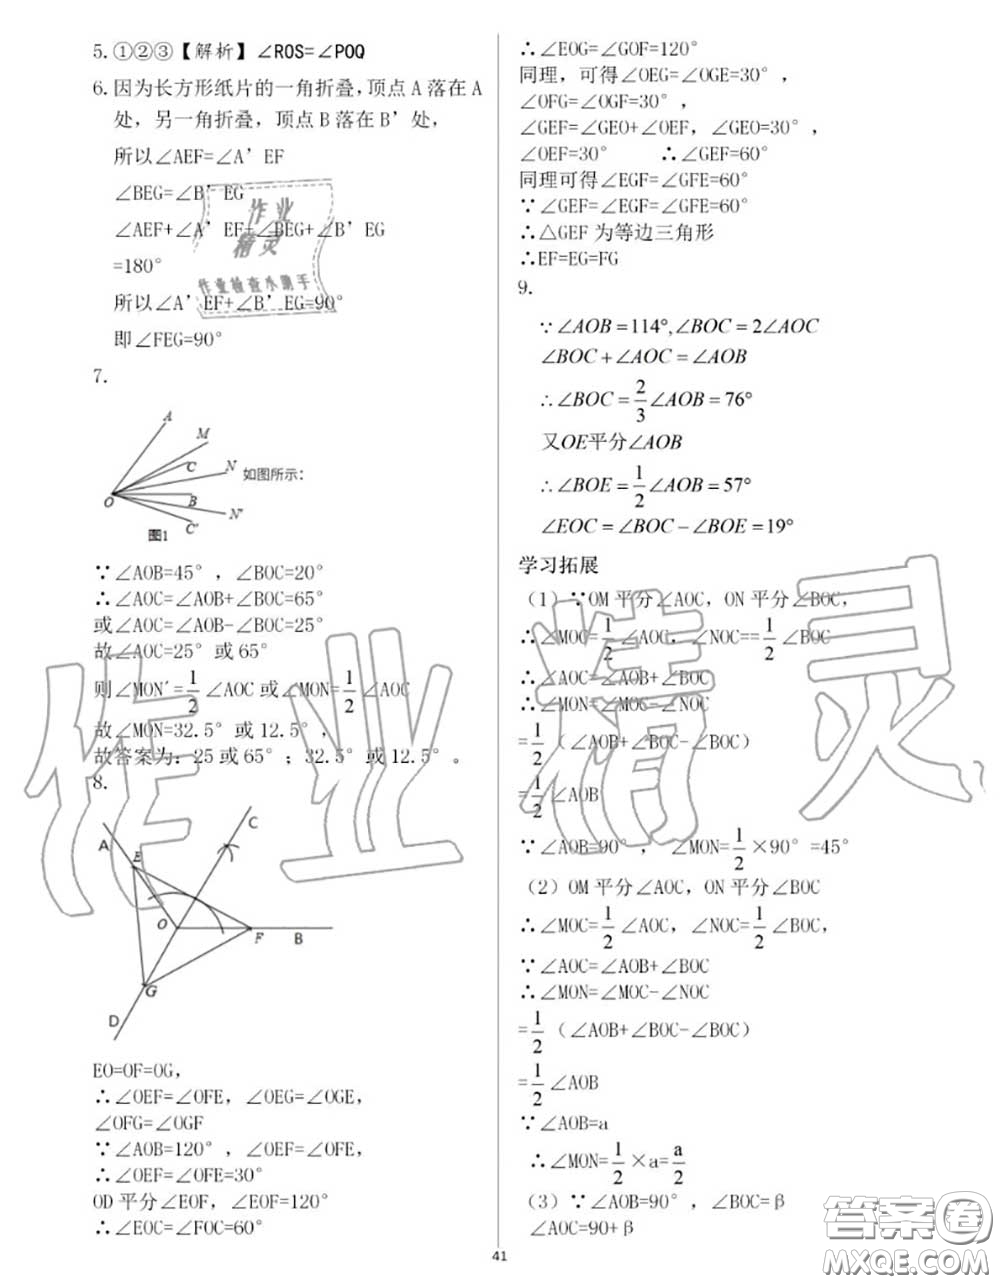 5. ①②③【解析】∠ROS=∠POQ
6. 因为长方形纸片的一角折叠，顶点 A 落在 A
处，另一角折叠，顶点 B 落在 B’处，
所以∠AEF=∠A’EF
∠BEG=∠B’EG
∠AEF+∠A’EF+∠BEG+∠B’EG
=180°
所以∠A’EF+∠B’EG=90°
即∠FEG=90°
7.
A
M
C
N
O
B
N'
C'
如图所示：
图1
∵∠AOB=45°，∠BOC=20°
∴∠AOC=∠AOB+∠BOC=65°
或∠AOC=∠AOB-∠BOC=25°
故∠AOC=25°或 65°
则∠MON′=1/2∠AOC 或∠MON=1/2∠AOC
故∠MON=32.5°或 12.5°，
故答案为：25 或 65°；32.5°或 12.5°。
8.
C
A
E
O
F
B
G
D
EO=OF=OG，
∴∠OEF=∠OFE，∠OEG=∠OGE，
∠OFG=∠OGF
∵∠AOB=120°，∠OEF=∠OFE，
∴∠OEF=∠OFE=30°
OD 平分∠EOF，∠EOF=120°
∴∠EOC=∠FOC=60°
∴∠EOG=∠GOF=120°
同理，可得∠OEG=∠OGE=30°，
∠OFG=∠OGF=30°，
∠GEF=∠GEO+∠OEF，∠GEO=30°，
∠OEF=30° ∴∠GEF=60°
同理可得∠EGF=∠GFE=60°
∵∠GEF=∠EGF=∠GFE=60°
∴△GEF 为等边三角形
∴EF=EG=FG
9.
∵∠AOB=114°,∠BOC=2∠AOC
∠BOC+∠AOC=∠AOB
∴∠BOC=2/3∠AOB=76°
又OE平分∠AOB
∴∠BOE=1/2∠AOB=57°
∠EOC=∠BOC-∠BOE=19°
学习拓展
（1）∵OM 平分∠AOC，ON 平分∠BOC，
∴∠MOC=1/2∠AOC，∠NOC==1/2∠BOC
∴∠AOC=∠AOB+∠BOC
∴∠MON=∠MOC-∠NOC
=1/2（∠AOB+∠BOC-∠BOC）
=1/2∠AOB
∵∠AOB=90°，∠MON=1/2×90°=45°
（2）OM 平分∠AOC，ON 平分∠BOC
∴∠MOC=1/2∠AOC，∠NOC=1/2∠BOC，
∵∠AOC=∠AOB+∠BOC
∴∠MON=∠MOC-∠NOC
=1/2（∠AOB+∠BOC-∠BOC）
=1/2∠AOB
∵∠AOB=a
∴∠MON=1/2×a=a/2
（3）∵∠AOB=90°，∠BOC=β
∠AOC=90+β
41
作业精灵
作业检查小助手
作业精灵
答案圈
MXQE.COM